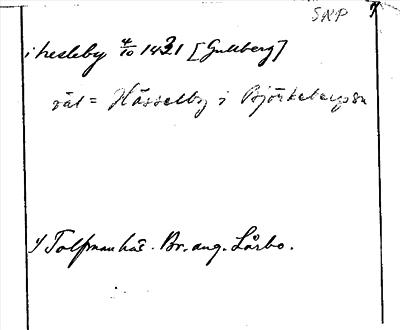 SNP
i hesleby 4/10 1431 [Gullberg]
väl = Hässelby i Björkeberga sn
Tolfmanhäs. Br. ang. Lårbo.